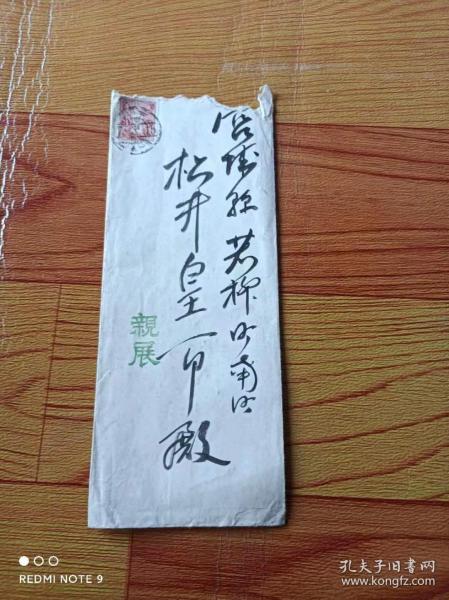 宮城縣若柳町南町
松井皇一郎殿
親展
REDMI NOTE 9
孔夫子旧书网
www.kongfz.com